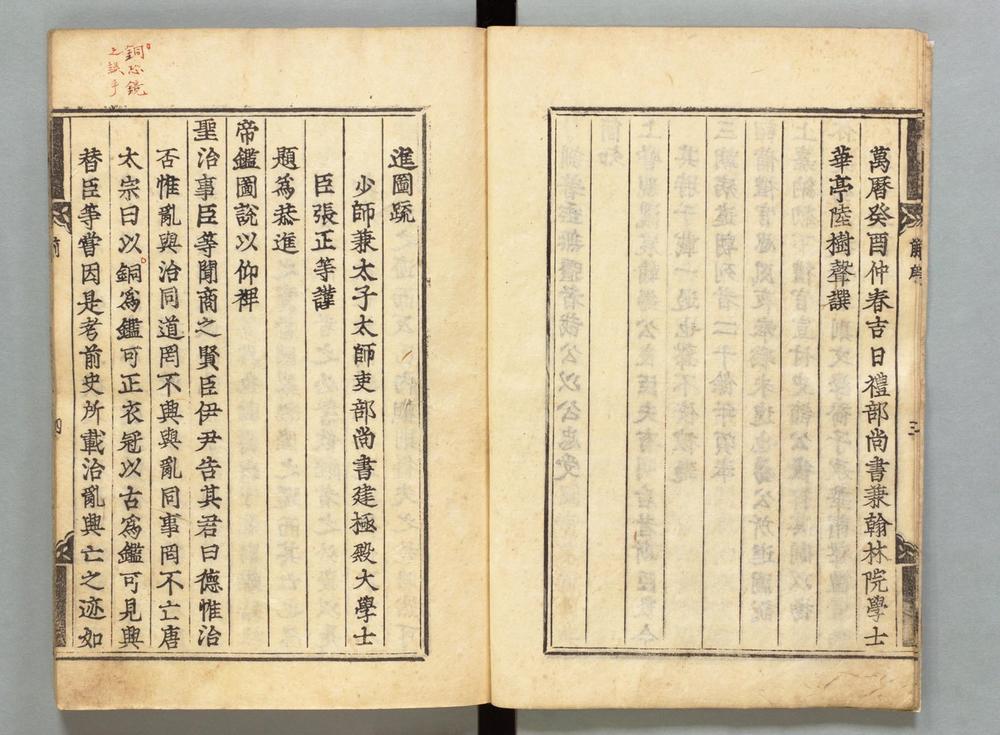 萬曆癸酉仲春吉日禮部尚書兼翰林院學士
華亭陸樹聲譔
三
進圖疏
少師兼太子太師吏部尚書建極殿大學士
臣張正等謹
題爲恭進
帝鑑圖說以仰裨
聖治事臣等聞商之賢臣伊尹告其君曰德惟治
否惟亂與治同道罔不興與亂同事罔不亡唐
太宗曰以銅爲鑑可正衣冠以古爲鑑可見興
替臣等嘗因是考前史所載治亂興亡之迹如
銅恐鏡
之誤乎
四